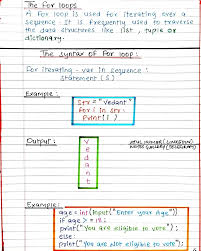 The for loops
A for loop is used for iterating over a
sequence. It is frequently used to traverse
the data structures like list, tuple or
dictionary.
The syntax of for loop:
for iterating - var in sequence:
statement(s)
Example:
Str = "Vedant"
for i in Str:
Print(i)
Output:
V
e
d
a
n
t
Example:
age = int(input("Enter your Age"))
if age > = 18:
print("You are eligible to vote")
else:
print("You are not eligible to vote")